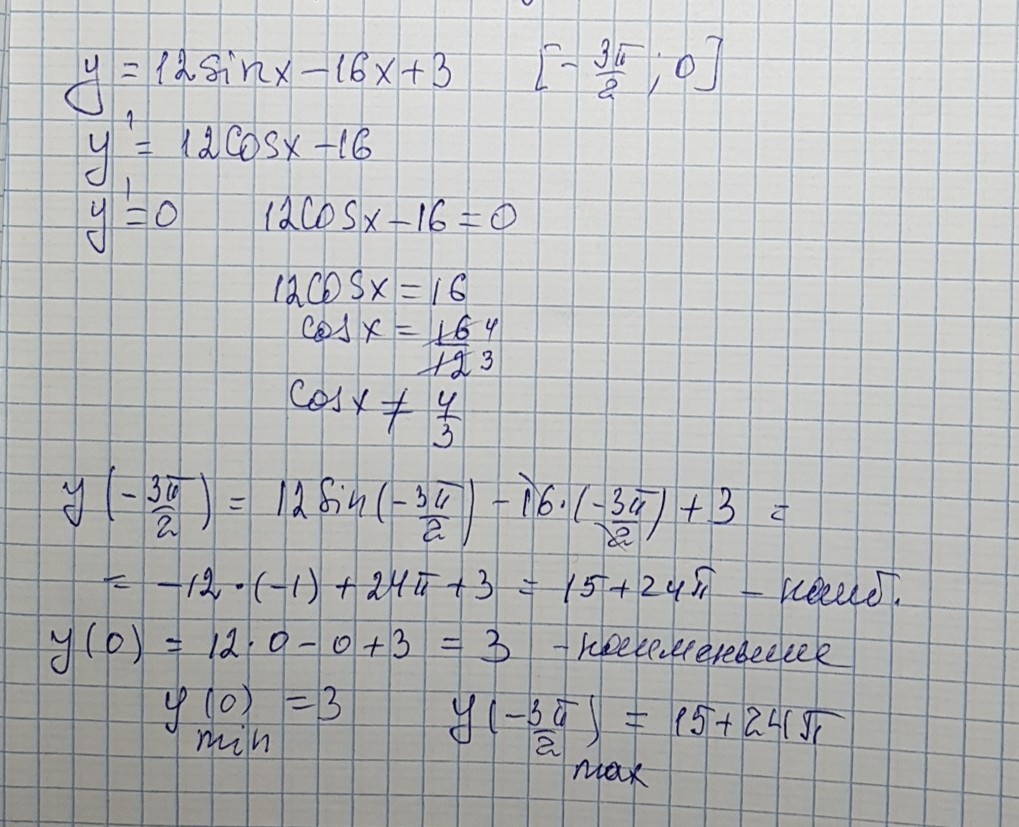 y = 12sinx - 16x + 3 [- 3π/2 ; 0]
y' = 12cosx - 16
y' = 0 12cosx - 16 = 0
12cosx = 16
cosx = 16 4/12 3
cosx ≠ 4/3
y(- 3π/2) = 12sin(- 3π/2) - 16·(- 3π/2) + 3 =
= -12·(-1) + 24π + 3 = 15 + 24π - наиб.
y(0) = 12·0 - 0 + 3 = 3 - наименьшее
y(0) = 3 y(- 3π/2) = 15 + 24π
min max